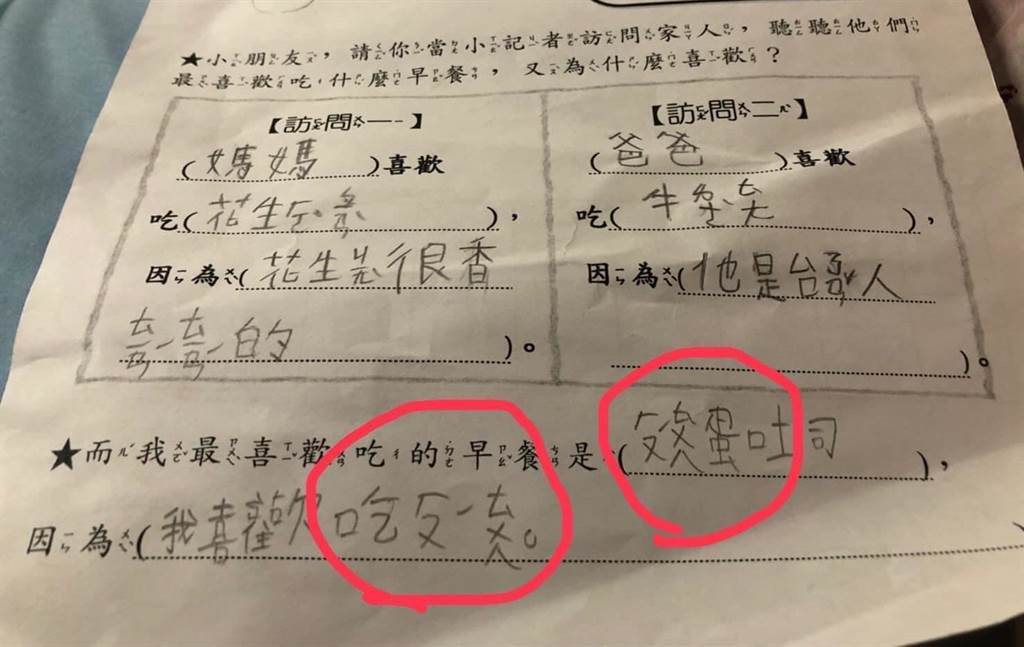 ★小朋友，請你當小記者訪問家人，聽聽他們
最喜歡吃什麼早餐，又為什麼喜歡？
【訪問一】
(媽媽)喜歡
吃(花生)，
因為(花生ㄐㄧㄤ很香
ㄊㄧㄢˊㄊㄧㄢˊ的)。
【訪問二】
(爸爸)喜歡
吃(牛ㄖㄡˋㄊㄤ)，
因為(他是台ㄋㄢˊ人
)。
★而我最喜歡吃的早餐是(蛋吐司)，
因為(我喜歡吃。)